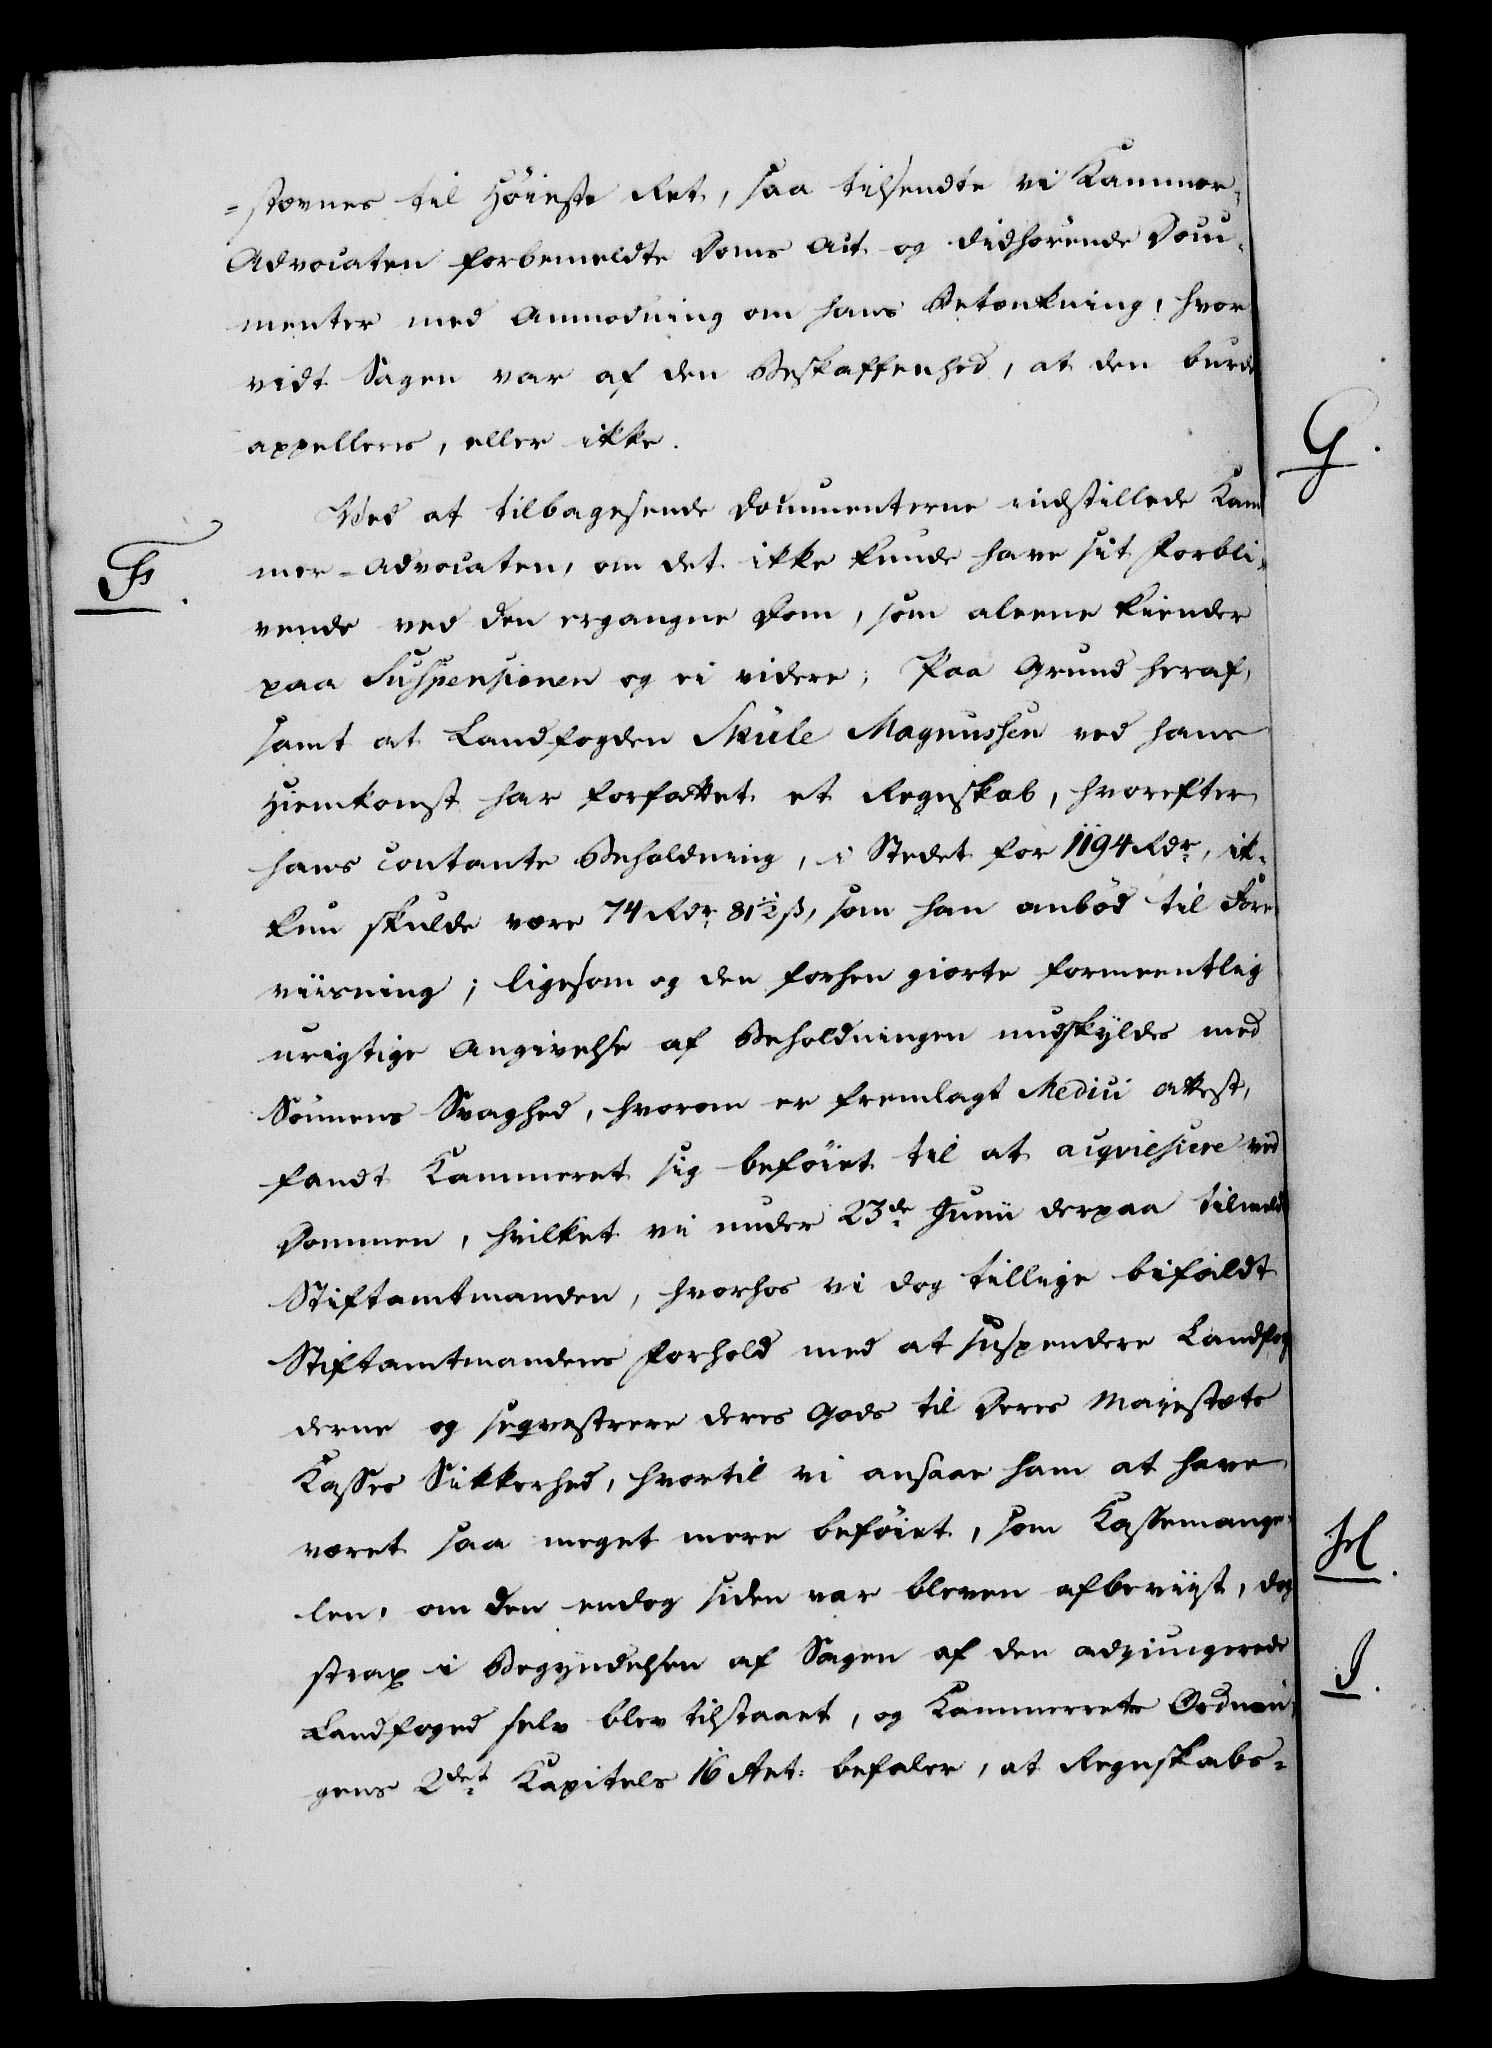 =stævnes til Høieste Ret, saa tilsendte vi Kammer-
Advocaten forbemeldte Doms Act og didhørende Docu-
menter med Anmodning om hans Betænkning, hvor
vidt Sagen var af den Beskaffenhed, at den burde
appelleres, eller ikke.
Ved at tilbagesende Documenterne indstillede Kam
F.
mer-Advocaten, om det ikke kunde have sit Forbli-
vende ved den ergangne Dom, som aleene kiender
paa Suspensionen og ei videre; Paa Grund heraf,
samt at Landfogden Skule Magnussen ved hans
Hiemkomst har forfattet et Regnskab, hvorefter
hans contante Beholdning, i Stedet for 1194 Rdr, ik-
kun skulde være 74 Rdr 81½ ß, som han anbød til Fore
viisning; ligesom og den forhen giorte formeentlig
urigtige Angivelse af Beholdningen undskyldes med
Sønnens Svaghed, hvorom er fremlagt Medici Attest,
fandt Kammeret sig beføiet til at acqviescere ved
Dommen, hvilket vi under 23de Junii derpaa tilmeldte
Stiftamtmanden, hvorhos vi dog tillige bifaldt
Stiftamtmandens Forhold med at suspendere Landfog
derne og seqvestrere deres Gods til Deres Majestæts
Kasses Sikkerhed, hvortil vi ansaae ham at have
været saa meget mere beføiet, som Kassemange-
len, om den endog siden var bleven afbeviist, dog
strax i Begyndelsen af Sagen af den adjungerede
Landfoged selv blev tilstaaet, og Kammerets Ordnin-
gens 2det Kapitels 16 Art: befaler, at Regnskabs-
G.
H.
I.